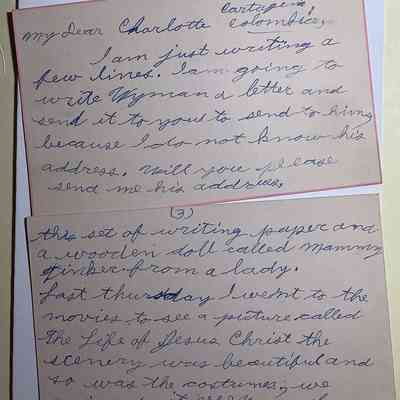 Cartagena
My Dear Charlotte Colombia,
I am just writing a
few lines. I am going to
write Wyman a letter and
send it to you to send to him,
because I do not know his
address. Will you please
send me his address.
(3)
this set of writing paper and
a wooden doll called Mammy
Tinker from a lady.
Last thursday I went to the
movies to see a picture called
The Life of Jesus Christ the
scenery was beautiful and
so was the costumes; we